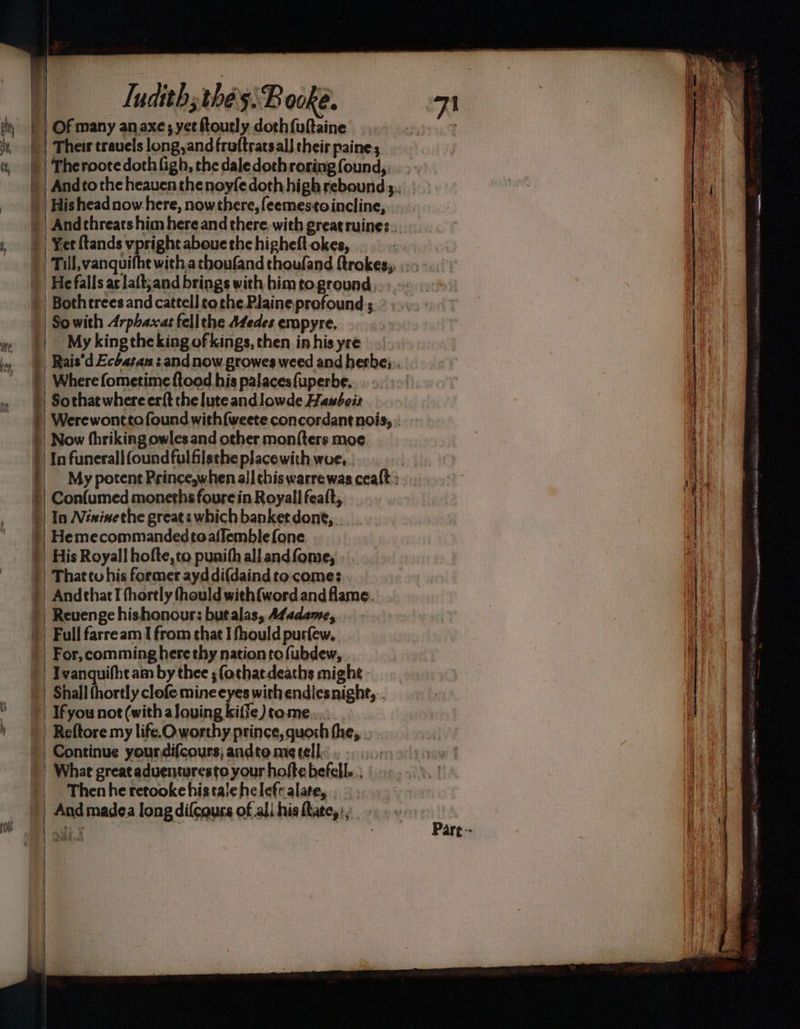 Iudith, the 5. Booke. 71
Of many an axe, yet ſtoutly doth ſuſtaine
Their trauels long, and fruſtrats all their paine;
The roote doth ſigh, the dale doth roring ſound,
And to the heauen the noyſe doth high rebound;
His head now here, now there, ſeemes to incline,
And threats him here and there with great ruine:
Yet ſtands vpright aboue the higheſt okes,
Till, vanquiſht with a thouſand thouſand ſtrokes,
He falls at laſt, and brings with him to ground
Both trees and cattell to the Plaine profound;
So with Arphaxat fell the Medes empyre.
My king the king of kings, then in his yre
Rais'd Ecbatan: and now growes weed and herbe,
Where ſometime ſtood his palace ſuperbe.
So that where erſt the lute and lowde Hawbois
Were wont to ſound with ſweete concordant nois,
Now ſhriking owles and other monſters moe
In funerall ſound fulfils the place with woe.
My potent Prince, when all this warre was ceaſt:
Conſumed moneths foure in Royall feaſt,
In Niniue the great: which banket done,
He me commanded to aſſemble ſone
His Royall hoſte, to puniſh all and ſome,
That to his former ayd diſdaind to come:
And that I ſhortly ſhould with ſword and flame
Reuenge his honour: but alas, Madame,
Full farre am I from that I ſhould purſew.
For, comming here thy nation to ſubdew,
I vanquiſht am by thee; ſo that deaths might
Shall ſhortly cloſe mine eyes with endles night,
If you not (with a louing kiſſe) to me
Reſtore my life. O worthy prince, quoth ſhe,
Continue your diſcours, and to me tell
What great aduentures to your hoſte befell.
Then he retooke his tale he left alate,
And made a long diſcours of all his ſtate,
Part-